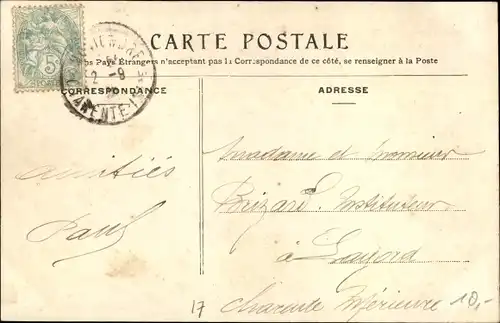 CARTE POSTALE
Pays Étrangers n'acceptant pas la Correspondance de ce côté, se renseigner à la Poste
CORRESPONDANCE
ADRESSE
5
2 - 9
CHARENTE-INF
amitiés
Paul
Madame et Monsieur
Brizard, Instituteur
à
Charente Inférieure
17
10,-